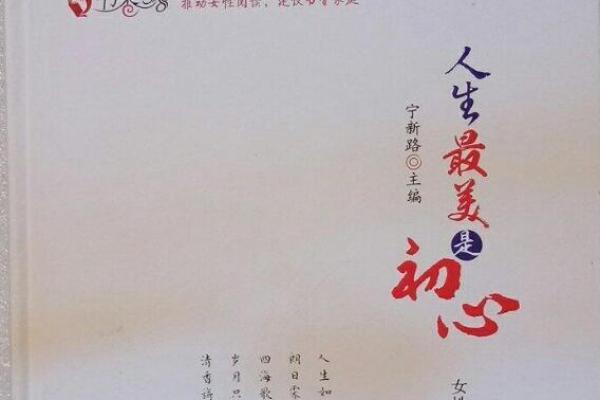 推动女性阅读，建设书香家庭
人生最美是初心
宁新路◎主编
女
人生如
明日
四海歌
岁月只
清香